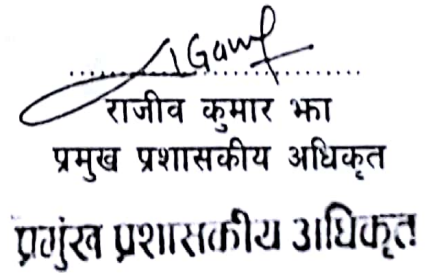 राजीव कुमार झा
प्रमुख प्रशासकीय अधिकृत
प्रमुख प्रशासकीय अधिकृत